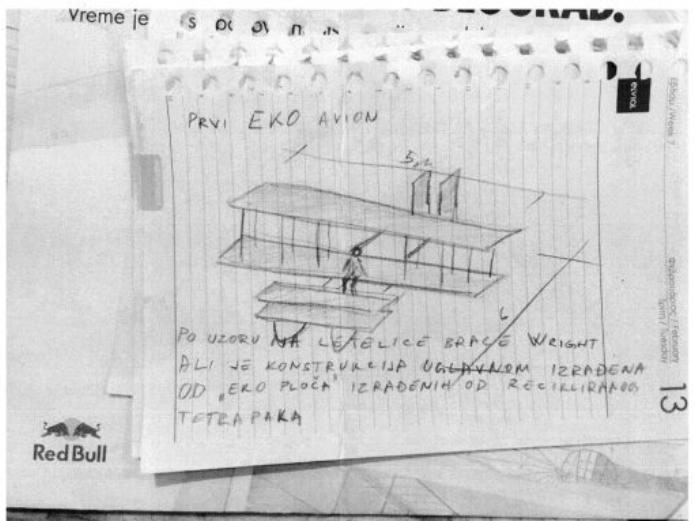 Vreme je
BEOGRAD.
PRVI EKO AVION
5m
6
PO UZORU NA LETELICE BRAĆE WRIGHT
ALI JE KONSTRUKCIJA UGLAVNOM IZRAĐENA
OD „EKO PLOČA" IZRAĐENIH OD RECIKLIRANOG
TETRAPAKA
13
Red Bull